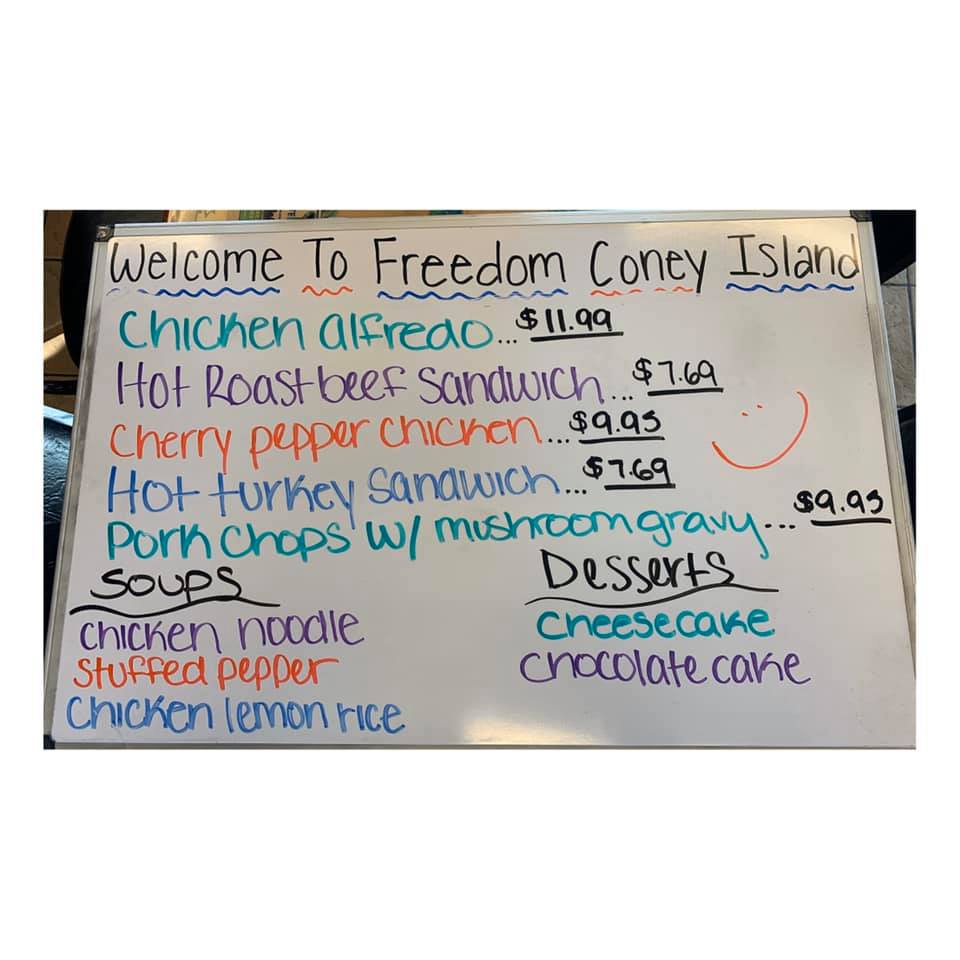 Welcome To Freedom Coney Island
Chicken alfredo... $11.99
Hot Roast beef Sandwich... $7.69
Cherry pepper chicken... $9.95
Hot turkey Sandwich... $7.69
Pork Chops w/ mushroom gravy... $9.95
Soups
chicken noodle
Stuffed pepper
Chicken lemon rice
Desserts
cheesecake
chocolate cake